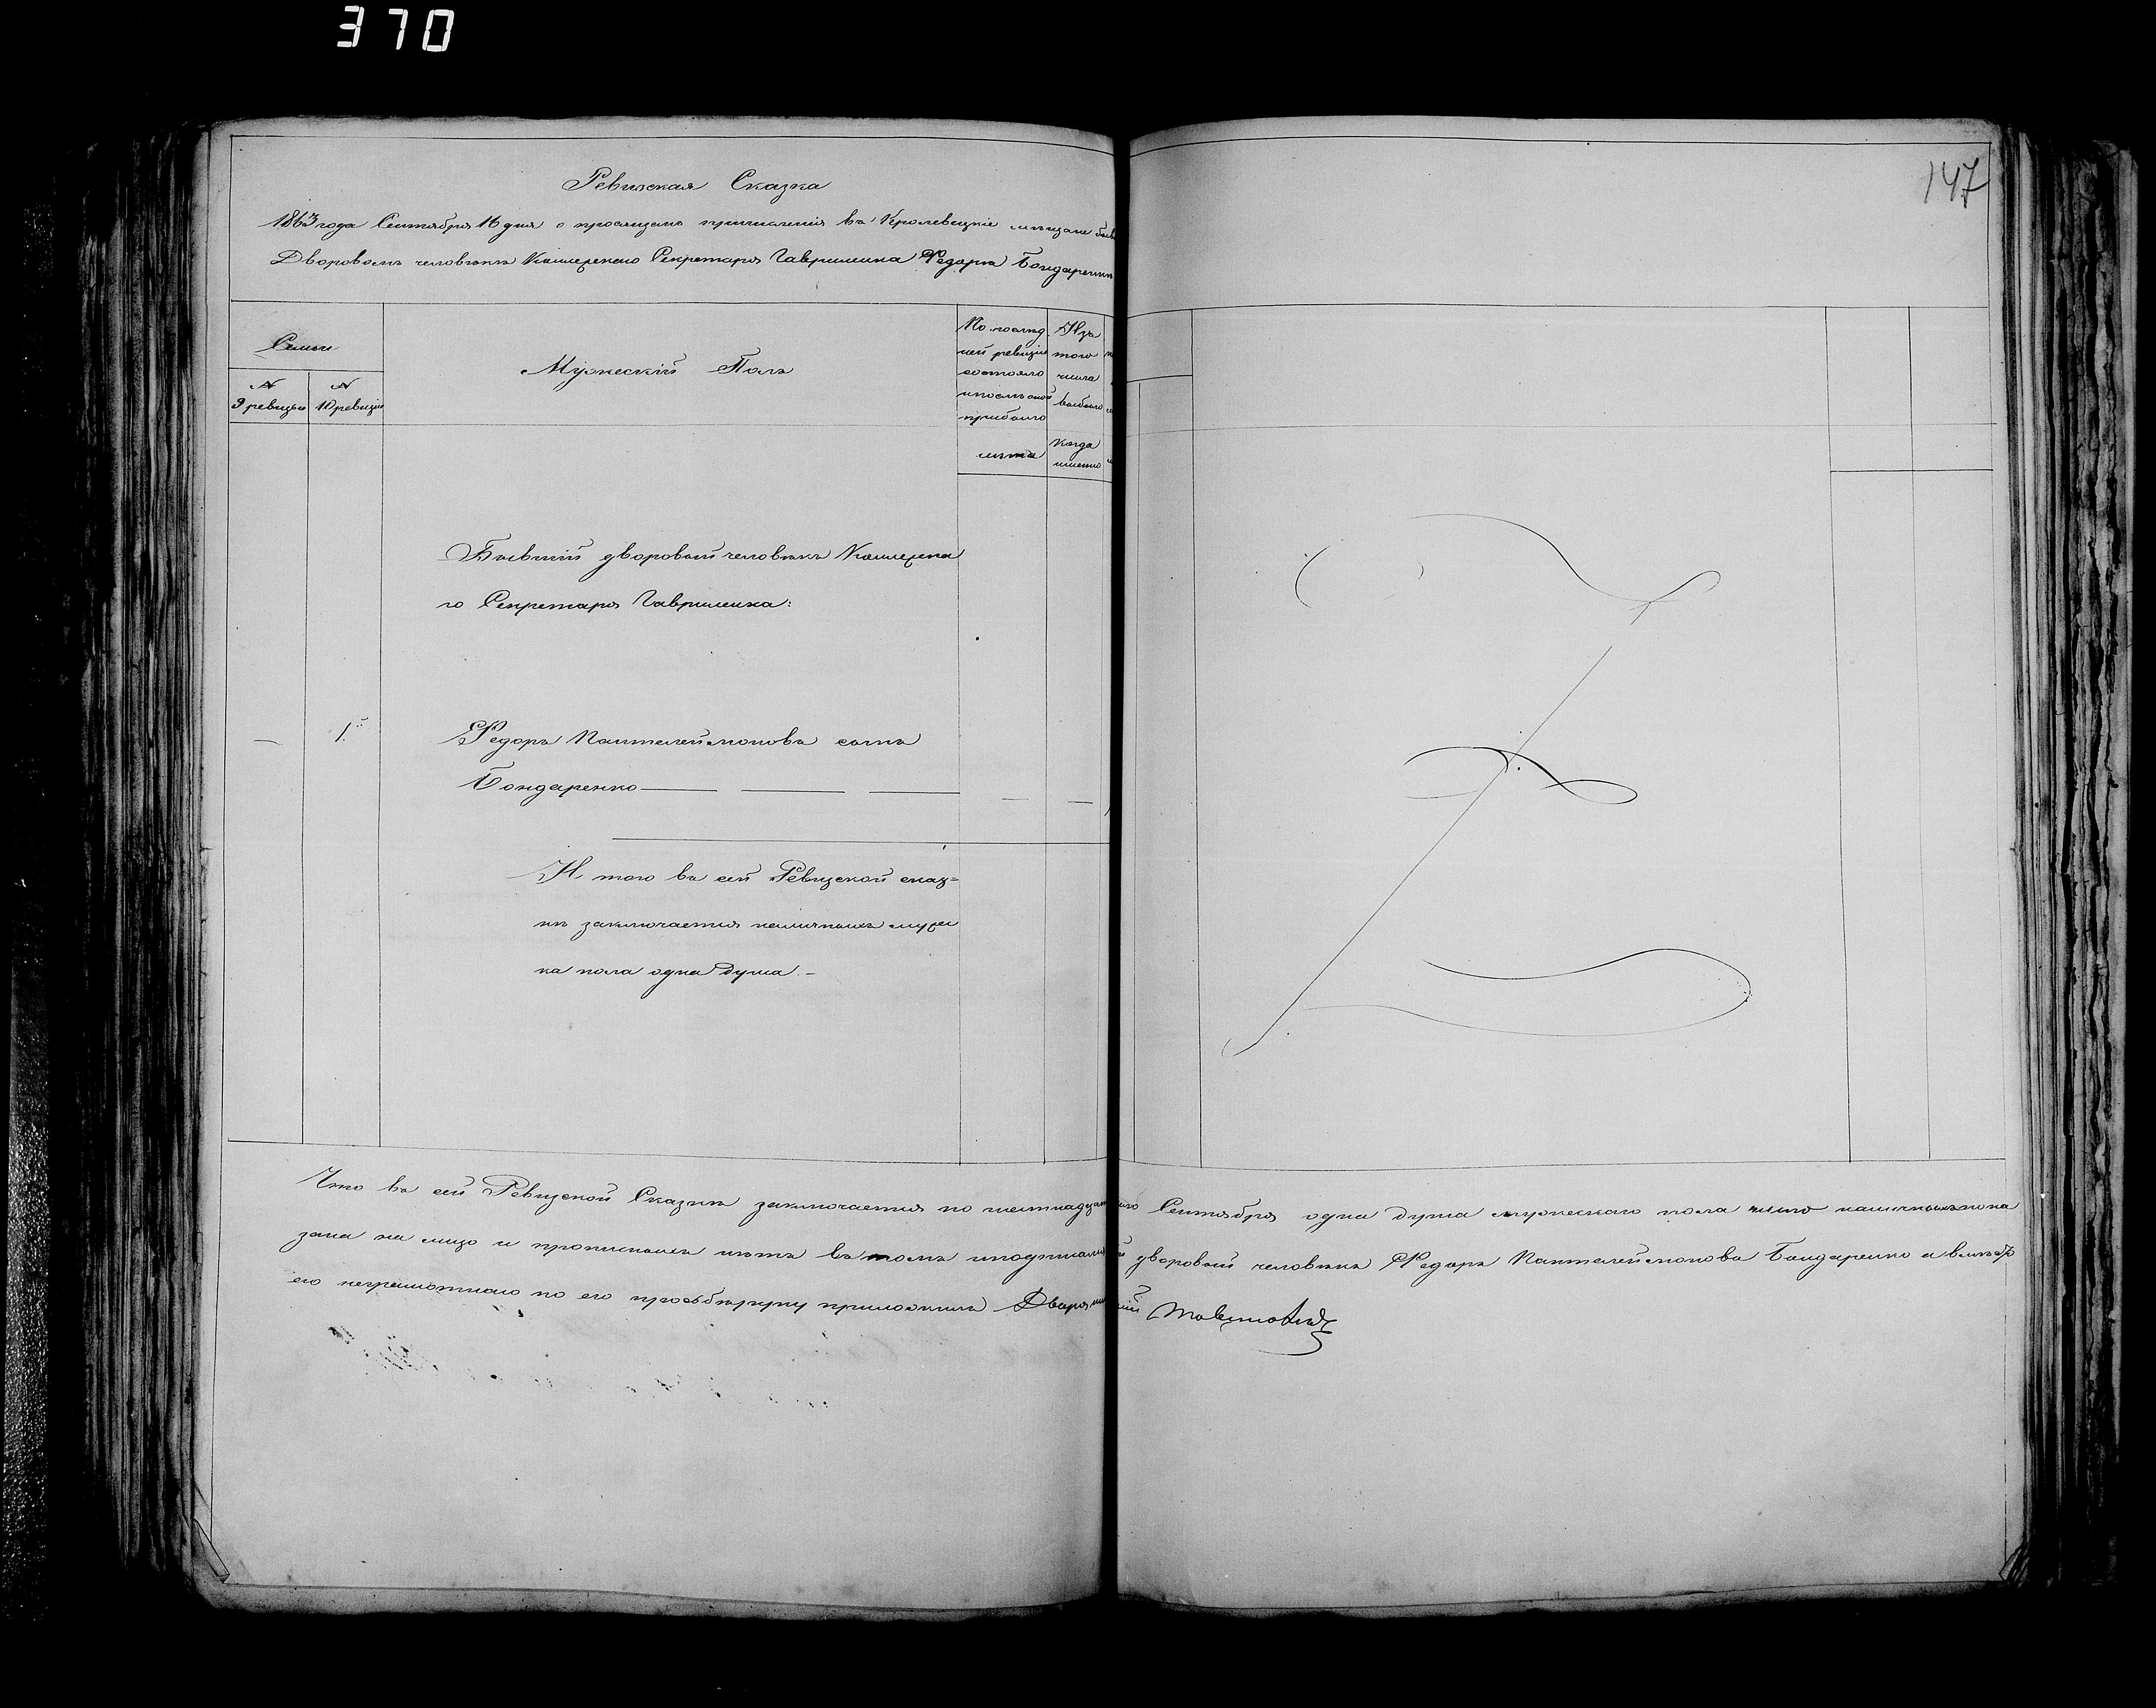 370
147
Ревизская Сказка
1863 года Сентября 16 дня о просящемъ причисленія въ Кролевецкіе мѣщане быв
Дворовомъ человѣкѣ Коллежскаго Секретаря Гавриленка Федорѣ Бондаренк
Семьи
№ 9 ревизіи
№ 10 ревизіи
Мужескій Полъ
По послѣд
ней ревизіи
состояло
и послѣ оной
прибыло
лѣта
Изъ
того
числа
выбыло
Когда
именно
Бывшій дворовый человѣкъ Коллежска
го Секретаря Гавриленка:
— 1й Федоръ Пантелеймоновъ сынъ
Бондаренко
И того въ сей Ревизской сказ=
кѣ заключается наличныхъ мужес
ка пола одна душа. –
Что въ сей Ревизской Сказкѣ заключается по шестнадцат аго Сентября одна душа мужескаго пола наличныхъ пока
зана на лицо и прописныхъ нѣтъ въ томъ дворовый человѣкъ Федоръ Пантелеймоновъ Бондаренко а вмѣсто
его неграмотнаго по его прозьбѣ руку приложилъ